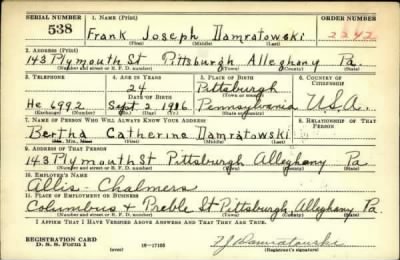 SERIAL NUMBER 1. NAME (Print) ORDER NUMBER
538 Frank Joseph Damratowski 2242
(First) (Middle) (Last)
2. ADDRESS (Print)
143 Plymouth St Pittsburgh Alleghany Pa.
(Number and street or R. F. D. number) (Town) (County) (State)
3. TELEPHONE 4. AGE IN YEARS 5. PLACE OF BIRTH 6. COUNTRY OF CITIZENSHIP
24 Pittsburgh
DATE OF BIRTH (Town or county)
He 6992 Sept 2 1916 Pennsylvania U.S.A.
(Exchange) (Number) (Mo.) (Day) (Yr.) (State or country)
7. NAME OF PERSON WHO WILL ALWAYS KNOW YOUR ADDRESS 8. RELATIONSHIP OF THAT PERSON
Bertha Catherine Damratowski
(Mr., Mrs., Miss) (First) (Middle) (Last)
9. ADDRESS OF THAT PERSON
143 Plymouth St Pittsburgh Alleghany Pa
(Number and street or R. F. D. number) (Town) (County) (State)
10. EMPLOYER'S NAME
Allis-Chalmers
11. PLACE OF EMPLOYMENT OR BUSINESS
Columbus + Preble St Pittsburgh, Alleghany Pa.
(Number and street or R. F. D. number) (Town) (County) (State)
I AFFIRM THAT I HAVE VERIFIED ABOVE ANSWERS AND THAT THEY ARE TRUE.
REGISTRATION CARD
D. S. S. FORM 1 (over) 16—17105 F J Damratowski
(Registrant's signature)